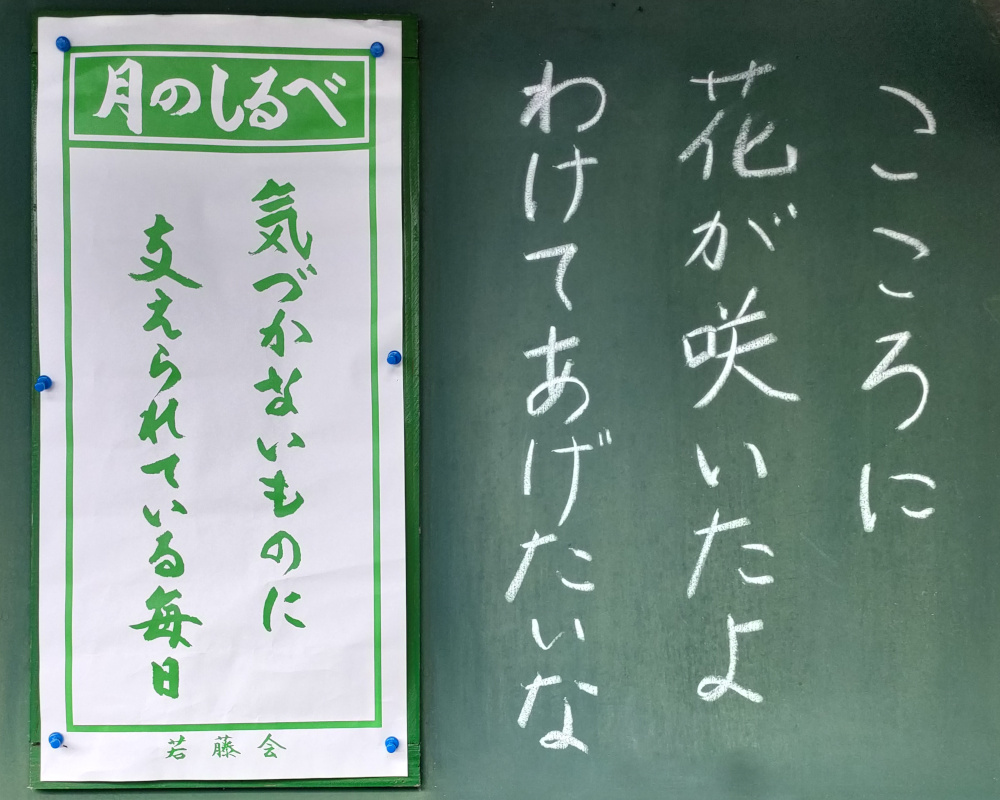 こころに
花が咲いたよ
わけてあげたいな
月のしるべ
気づかないものに
支えられている毎日
若藤会